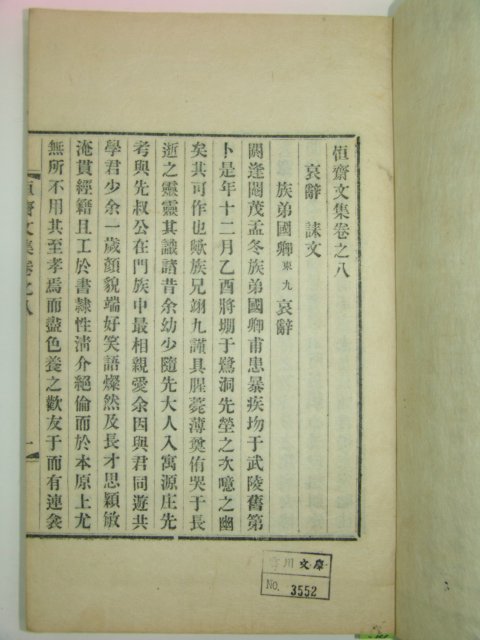 恒齋文集卷之八
哀辭 誄文
族弟國卿東九哀辭
閼逢閹茂孟冬族弟國卿甫患暴疾歾于武陵舊第
卜是年十二月乙酉將堋于鷺洞先塋之次噫之幽
矣其可作也歟族兄翊九謹具腥薧薄奠侑哭于長
逝之靈靈其識諸昔余幼少隨先大人入寓源庄先
考與先叔公在門族中最相親愛余因與君同遊共
學君少余一歲顏貌端好笑語燦然及長才思穎敏
淹貫經籍且工於書隷性淸介絕倫而於本原上尤
無所不用其至孝焉而盡色養之歡友于而有連衾
恒齋文集卷之八
一
川文庫
No. 3552